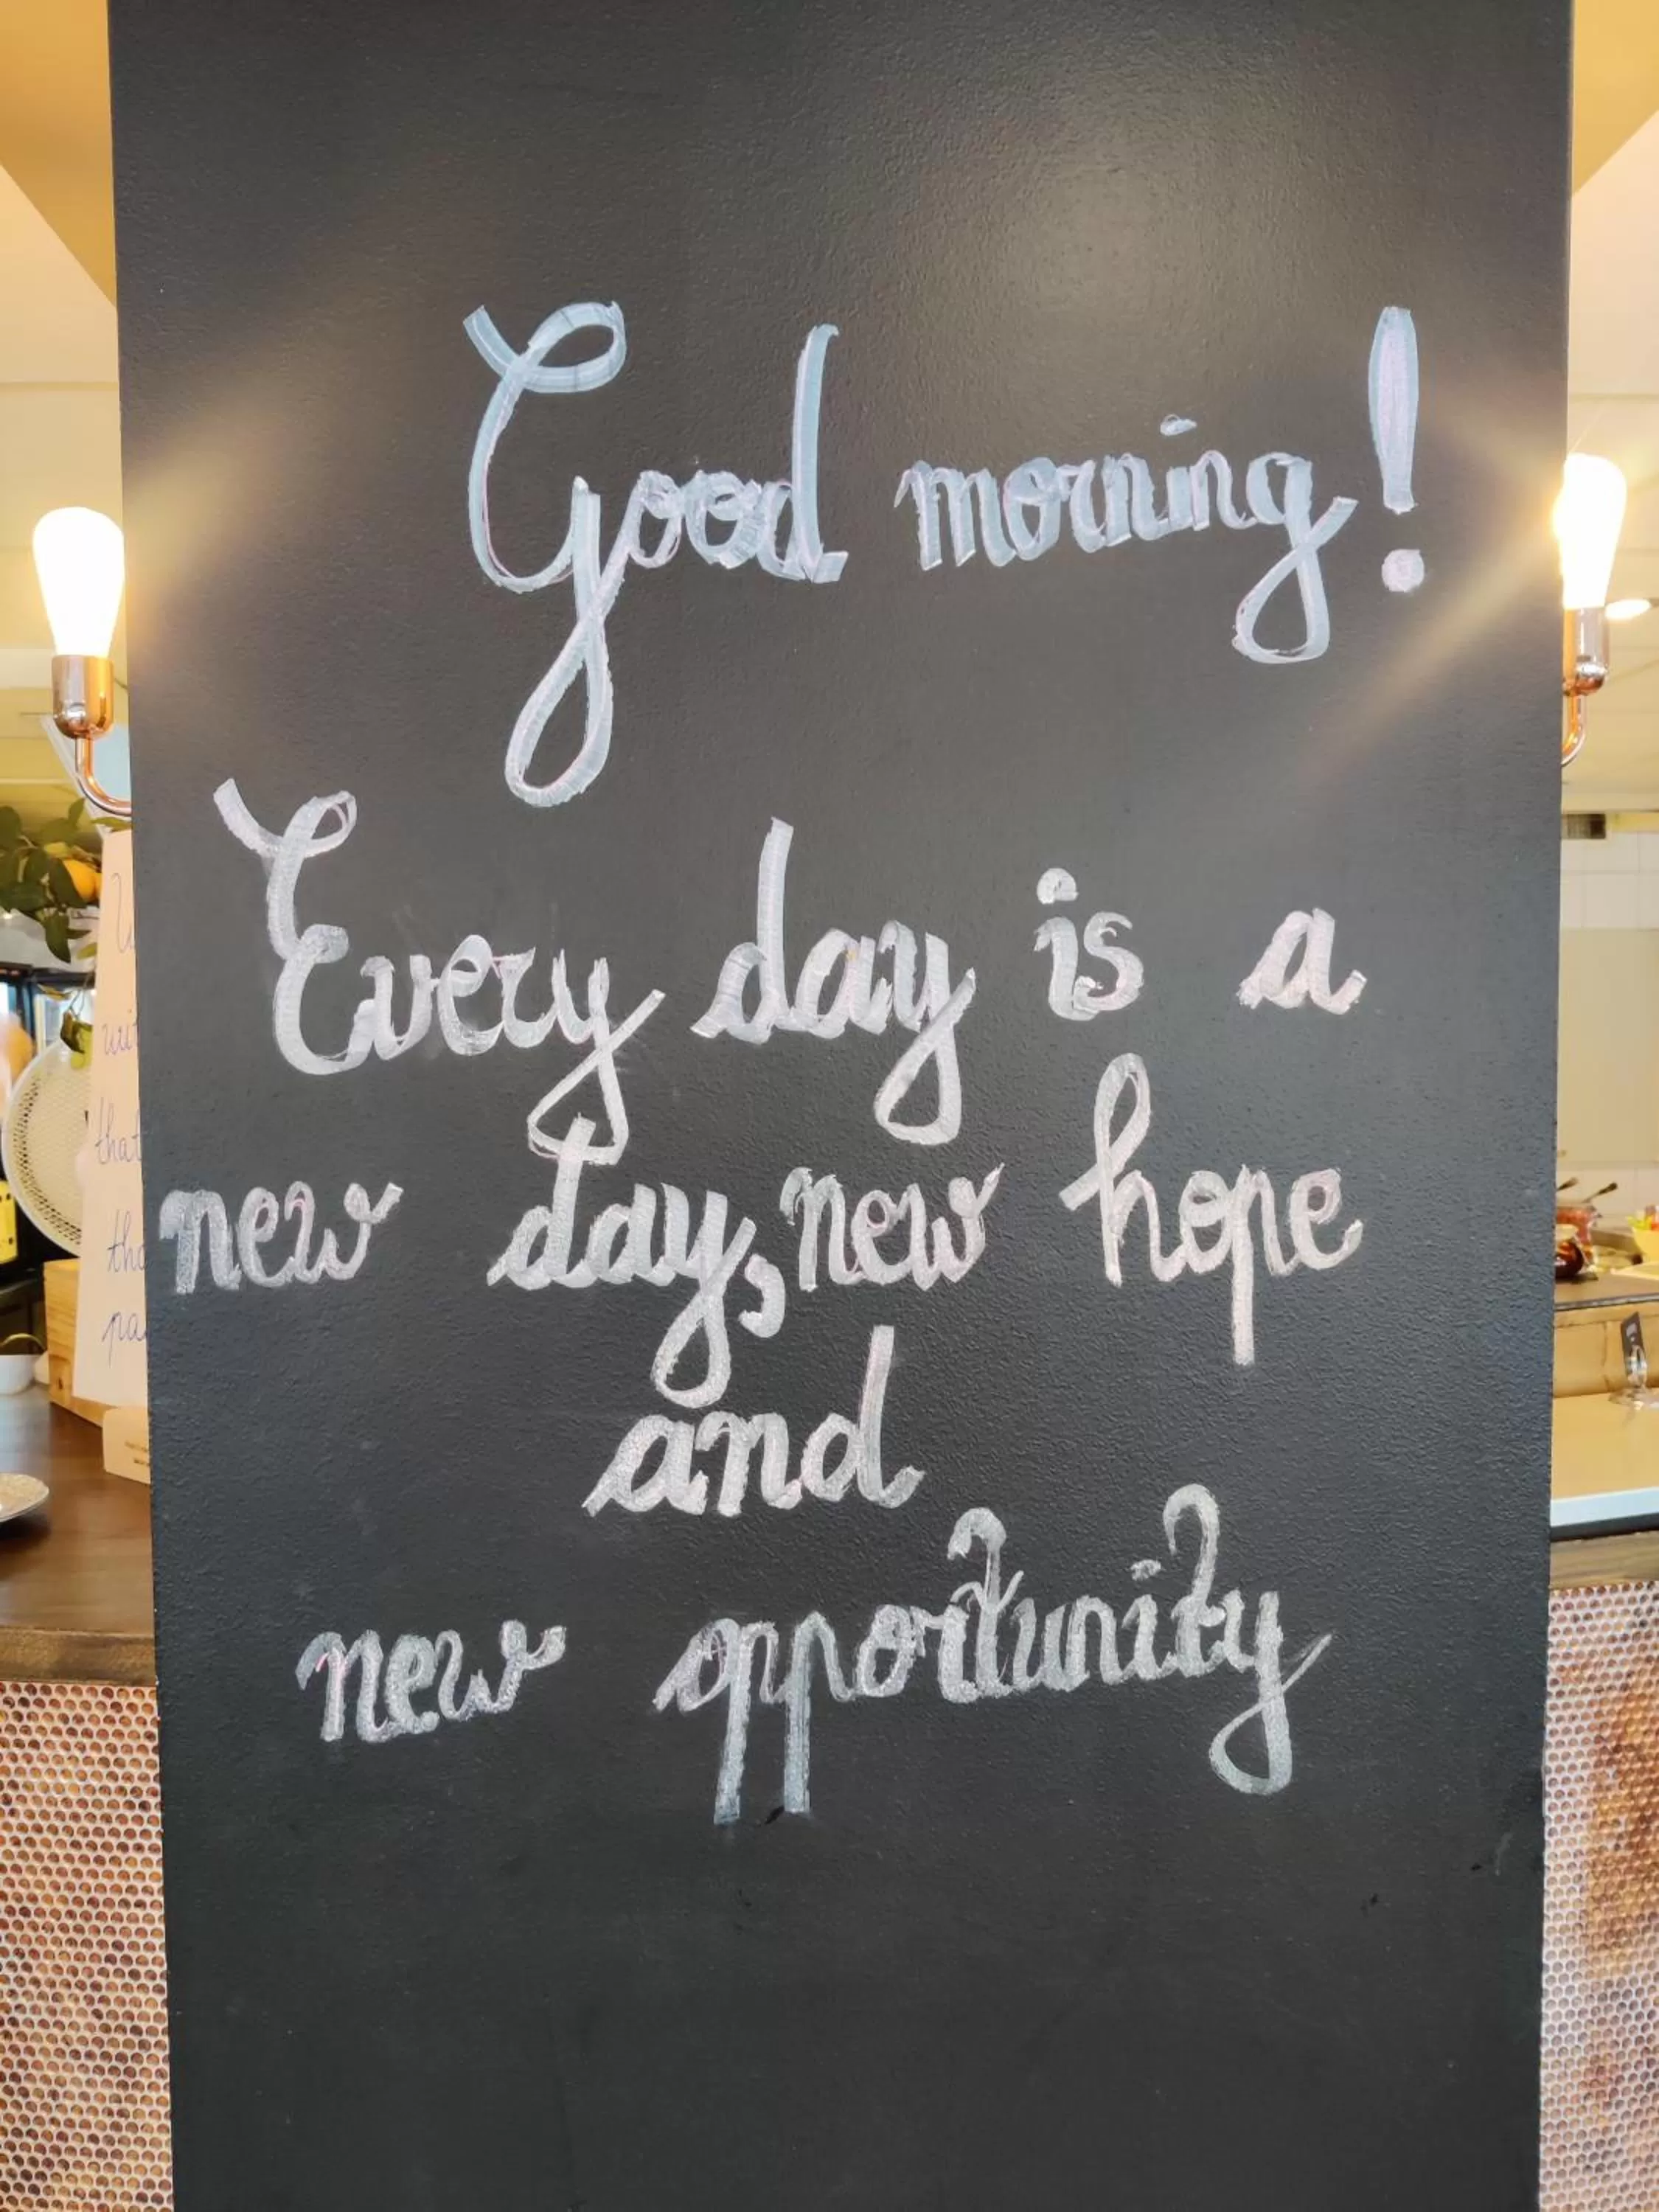 Good morning!
Every day is a
new day, new hope
and
new opportunity
that